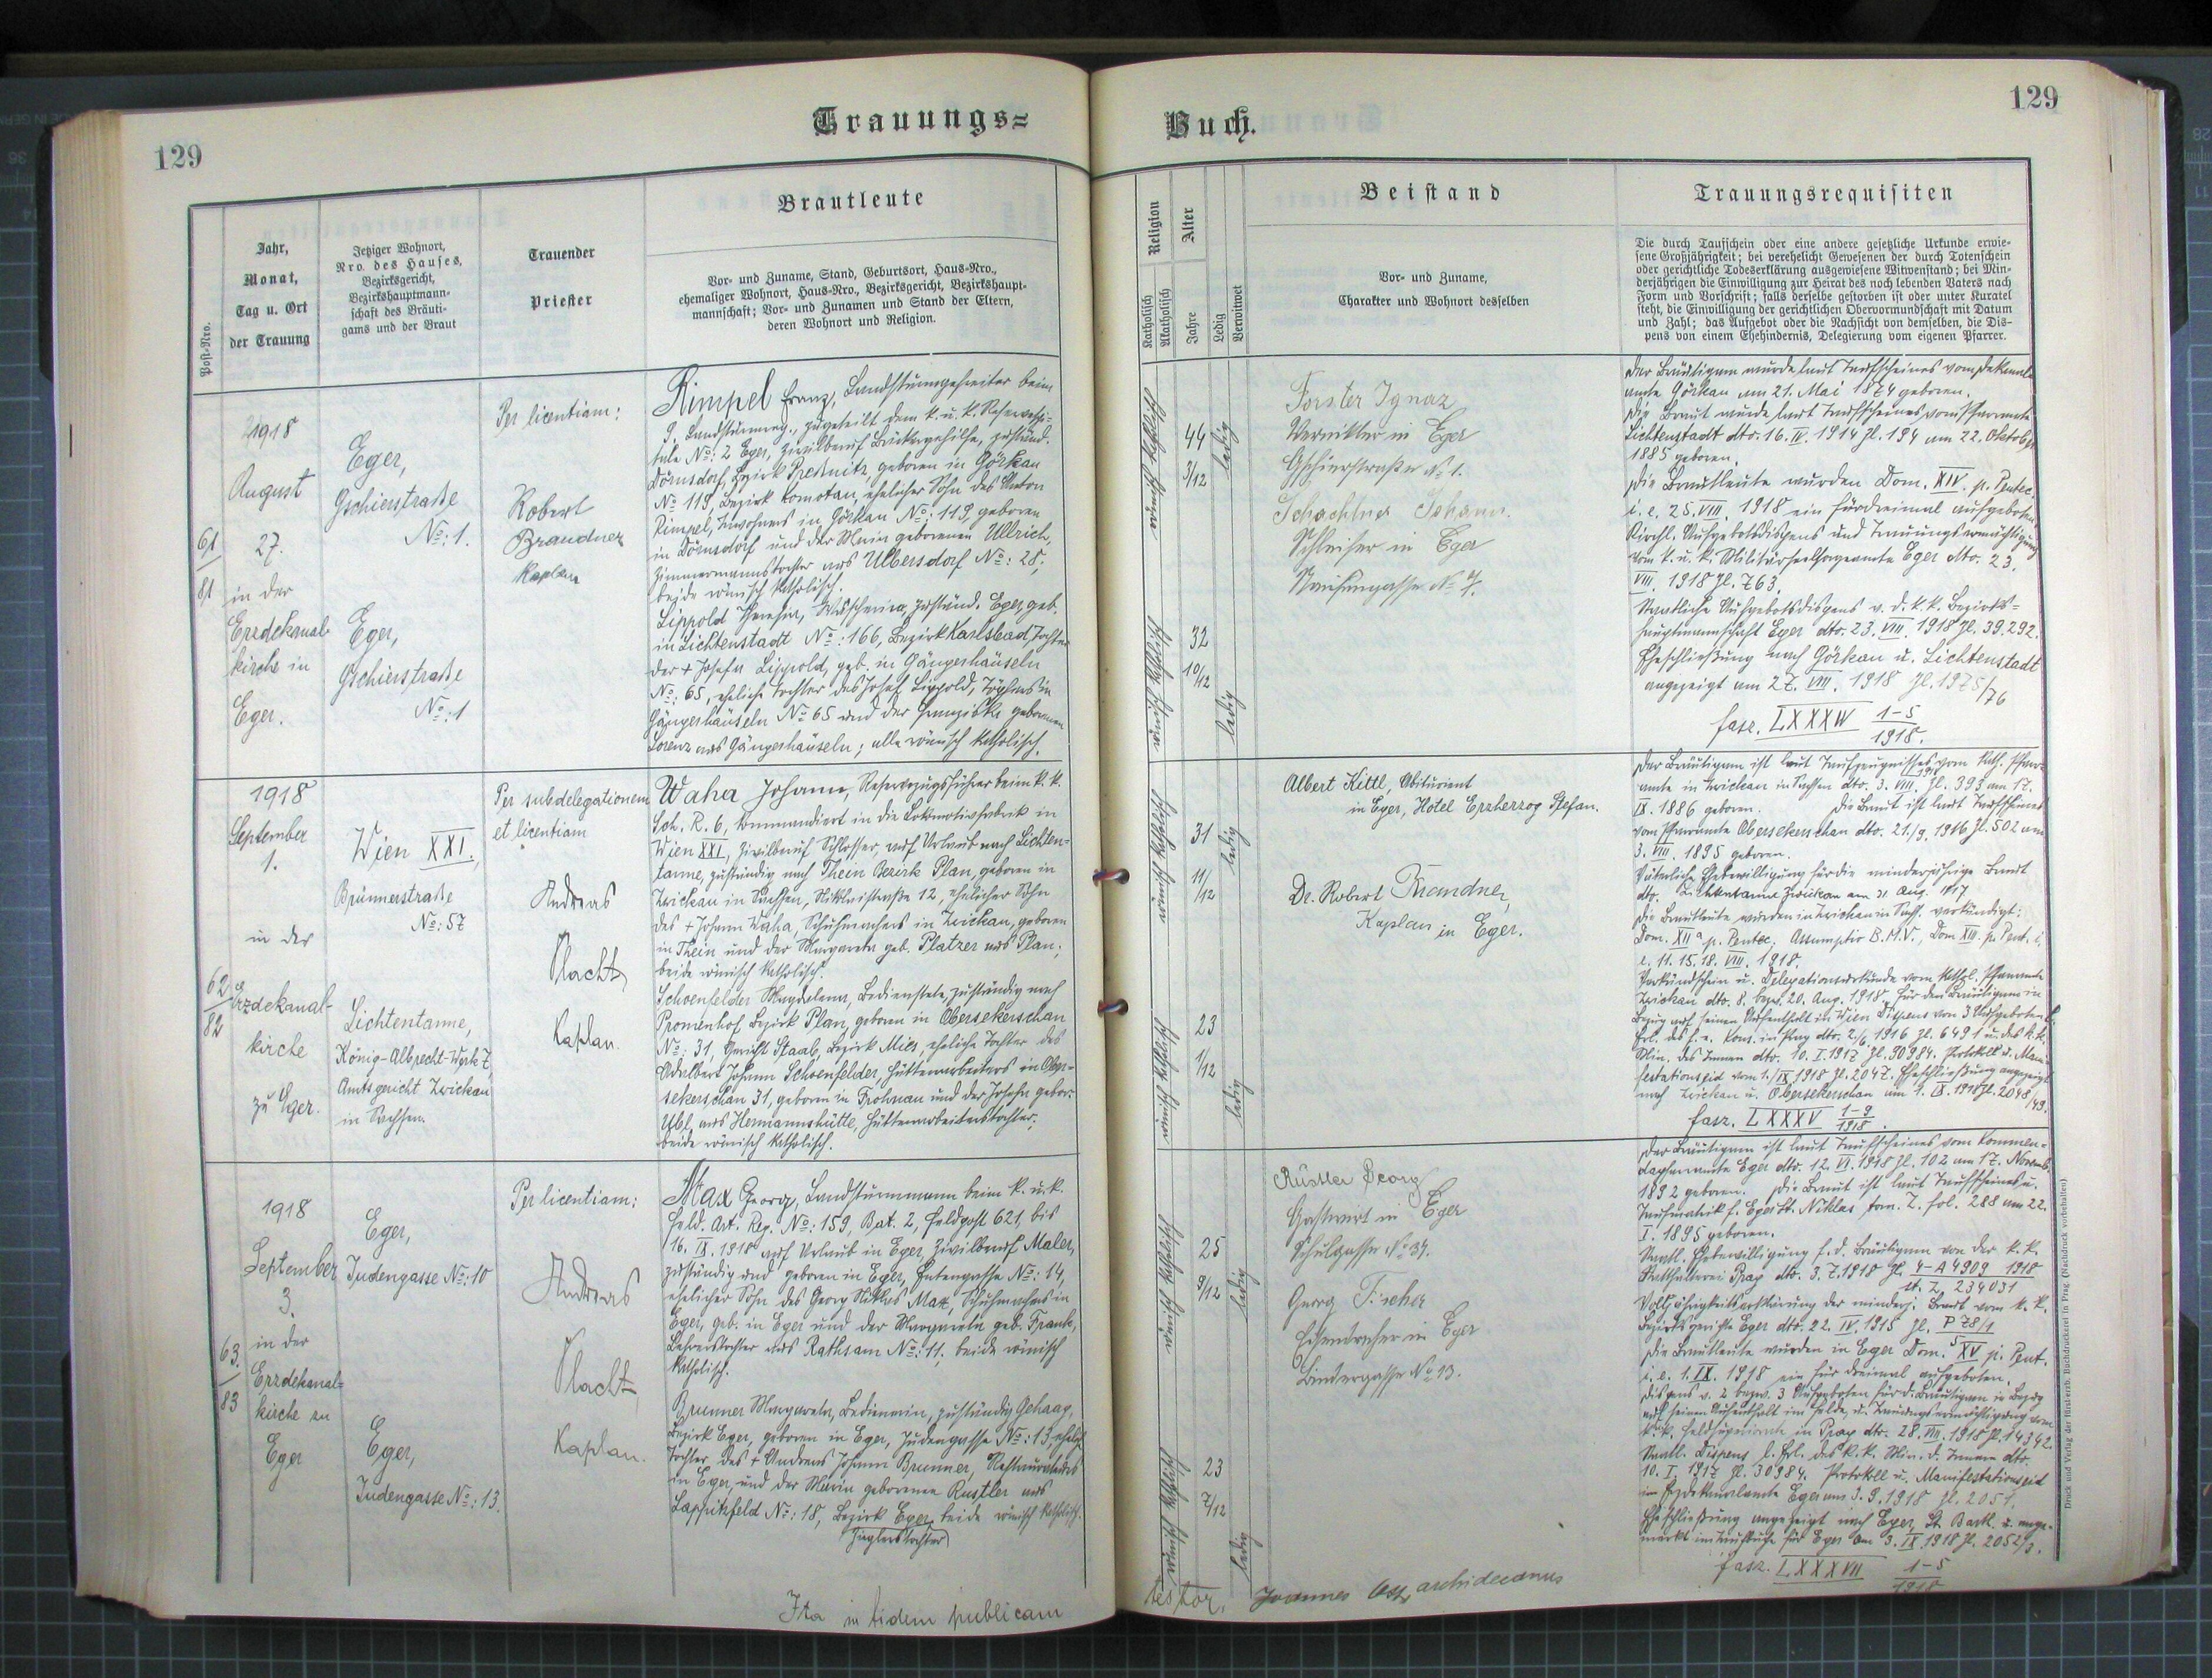 Trauungs=
Buch.
129
129
Post-Nro.
Jahr,
Monat,
Tag u. Ort
der Trauung
Jetziger Wohnort,
Nro. des Hauses,
Bezirksgericht,
Bezirkshauptmann-
schaft des Bräuti-
gams und der Braut
Trauender
Priester
Brautleute
Vor- und Zuname, Stand, Geburtsort, Haus-Nro.,
ehemaliger Wohnort, Haus-Nro., Bezirksgericht, Bezirkshaupt-
mannschaft; Vor- und Zunamen und Stand der Eltern,
deren Wohnort und Religion.
Religion
Katholisch
Akatholisch
Alter
Jahre
Ledig
Verwitwet
Beistand
Vor- und Zuname,
Charakter und Wohnort desselben
Trauungsrequisiten
Die durch Taufschein oder eine andere gesetzliche Urkunde erwie-
sene Großjährigkeit; bei verehelicht Gewesenen der durch Totenschein
oder gerichtliche Todeserklärung ausgewiesene Witwenstand; bei Min-
derjährigen die Einwilligung zur Heirat des noch lebenden Vaters nach
Form und Vorschrift; falls derselbe gestorben ist oder unter Kuratel
steht, die Einwilligung der gerichtlichen Obervormundschaft mit Datum
und Zahl; das Aufgebot oder die Nachsicht von demselben, die Dis-
pens von einem Ehehindernis, Delegierung vom eigenen Pfarrer.
61/81
1918
August
27.
in der
Erzdekanal-
kirche in
Eger.
Eger,
Gschierstraße
No: 1.
Eger,
Gschierstraße
No: 1
Per licentiam:
Robert
Brandner
Kaplan
Rimpel Franz, Landsturmgefreiter beim
9. Landsturmreg., zugeteilt dem k. u. k. Reservespi-
tale No: 2 Eger, Zivilberuf Bäckergehilfe, zuständ.
Dörnsdorf, Bezirk Preßnitz, geboren in Görkau
No 119, Bezirk Komotau, ehelicher Sohn des Anton
Rimpel, Inwohners in Görkau No: 119, geboren
in Dörnsdorf und der Maria geborenen Ullrich,
Zimmermannstochter aus Ulbersdorf No: 28;
beide römisch katholisch.
Lippold Theresia, Wäscherin, zuständ. Eger, geb.
in Lichtenstadt No: 166, Bezirk Karlsbad, Tochter
der + Josefa Lippold, geb. in Gängerhäuseln
No: 65, eheliche Tochter des Josef Lippold, Töpfers in
Gängerhäuseln No 65 und der Franziska geborenen
Lorenz aus Gängerhäuseln; alle römisch katholisch.
römisch katholisch
44
3/12
ledig
römisch katholisch
32
10/12
ledig
Forster Ignaz
in Eger
Gschierstraße No 1.
Schachtner Johann.
Schleifer in Eger
No 7.
Der Bräutigam wurde laut Taufscheines vom Dekanal-
amte Görkau am 21. Mai 1874 geboren.
Die Braut wurde laut Taufscheines vom Pfarramte
Lichtenstadt dto. 16. IV. 1914 Zl. 194 am 22. Oktober
1885 geboren.
Die Brautleute wurden Dom. XIV. p. Pentec.
i. e. 25. VIII. 1918 ein für dreimal aufgeboten.
Kirchl. Aufgebotsdispens und Trauungsermächtigung
vom k. u. k. Militärseelsorgeamte Eger dto. 23.
VIII. 1918 Zl. 763.
Staatliche Aufgebotsdispens v. d. k. k. Bezirks-
hauptmannschaft Eger dto. 23. VIII. 1918 Zl. 39.292.
Eheschließung nach Görkau u. Lichtenstadt
angezeigt am 27. VIII. 1918 Zl. 1975/76
fasz. LXXXIV 1-5/1918.
62/82
1918
September
1.
in der
Erzdekanal-
kirche
zu Eger.
Wien XXI.,
Brünnerstraße
No: 57
Lichtentanne,
König-Albrecht-Werk 7,
Amtsgericht Zwickau
in Sachsen.
Per subdelegationem
et licentiam
Andreas
Placht
Kaplan.
Waha Johann, Reservezugsführer beim k. k.
Sch. R. 6, kommandiert in die Lokomotivfabrik in
Wien XXI, Zivilberuf Schlosser, auf Urlaub nach Lichten-
tanne, zuständig nach Thein Bezirk Plan, geboren in
Zwickau in Sachsen, Nikolaistraße 12, ehelicher Sohn
des + Johann Waha, Schuhmachers in Zwickau, geboren
in Thein und der Margareta geb. Platzer aus Plan;
beide römisch katholisch.
Schoenfelder Magdalena, Bedienstete, zuständig nach
Promenhof Bezirk Plan, geboren in Obersekerschan
No: 31, Gericht Staab, Bezirk Mies, eheliche Tochter des
Adalbert Johann Schoenfelder, Hüttenarbeiters in Ober-
sekerschan 31, geboren in Frohnau und der Josefa gebor.
Ubl aus Hermannshütte, Hüttenarbeiterstochter;
beide römisch katholisch.
römisch katholisch
31
11/12
ledig
römisch katholisch
23
1/12
ledig
Albert Kittl, Abiturient
in Eger, Hotel Erzherzog Stefan.
Dr. Robert Brandner,
Kaplan in Eger.
Der Bräutigam ist laut Taufzeugnisses vom kath. Pfarr-
amte in Zwickau in Sachsen dto. 3. VIII. Zl. 393 am 17.
IX. 1886 geboren. Die Braut ist laut Taufscheines
vom Pfarramte Obersekerschan dto. 21./9. 1916 Zl. 502 am
3. VIII. 1895 geboren.
Väterliche Ehebewilligung für die minderjährige Braut
dto. Lichtentanne Zwickau am 21 Aug. 1917
Die Brautleute wurden in Zwickau in Sachs. verkündigt:
Dom. XIIa p. Pentec., Assumptio B.M.V., Dom XIII. p. Pent. i.
e. 11. 15. 18. VIII. 1918.
Verkündschein u. Delegationsurkunde vom kathol. Pfarramte
Zwickau dto. 8. bezw. 20. Aug. 1918. Für den Bräutigam in
Bezug auf seinen Aufenthalt in Wien Dispens von 3 Aufgeboten l.
Erl. des f. e. Kons. in Prag dto. 2./6. 1916 Zl. 6491 u. des k. k.
Min. des Innern dto. 10. I. 1917 Zl. 30984. Protokoll u. Mani-
festationseid vom 1./IX. 1918 Zl. 2047. Eheschließung angezeigt
nach Zwickau u. Obersekerschan am 1. IX. 1918 Zl. 2048/49.
fasz. LXXXV 1-9/1918.
63./83
1918
September
3.
in der
Erzdekanal=
kirche zu
Eger
Eger,
Judengasse No: 10
Eger,
Judengasse No: 13.
Per licentiam:
Andreas
Placht
Kaplan.
Max Georg, Landsturmmann beim k. u. k.
Feld. Art. Reg. No: 159, Bat. 2, Feldpost 621, bis
16. IX. 1918 auf Urlaub in Eger, Zivilberuf Maler,
zuständig und geboren in Eger, No: 14,
ehelicher Sohn des Georg Niklas Max, Schuhmachers in
Eger, geb. in Eger und der Margareta geb. Frank,
aus Rathsam No: 11; beide römisch
katholisch.
Brunner Margareta, Bedienerin, zuständig Gehaag,
Bezirk Eger, geboren in Eger, Judengasse No: 13, ehelich.
Tochter des + Andreas Johann Brunner, Restaurateurs
in Eger, und der Maria geborenen Rustler aus
Lapitzfeld No: 18, Bezirk Eger, beide römisch katholisch.
Zieglerstochter
römisch katholisch
25
9/12
ledig
römisch katholisch
23
7/12
ledig
Rustler Georg
Gastwirt in Eger
Schulgasse No 34.
Georg Fischer
in Eger
Bindergasse No 13.
Der Bräutigam ist laut Taufscheines vom Kommen-
dapfarramte Eger dto. 12. VI. 1918 Zl. 102 am 17. Novemb.
1892 geboren. Die Braut ist laut Taufscheines u.
Taufmatrik f. Eger St. Niklas tom. Z. fol. 288 am 22.
I. 1895 geboren.
Staatl. Ehebewilligung f. d. Bräutigam von der k. k.
Statthalterei Prag dto. 3. 7. 1918 Zl. 4-A 4909 1918
st. Z. 234031
Volljährigkeitserklärung der minderj. Braut vom k. k.
Bezirksgericht Eger dto. 22. IV. 1915 Zl. P 78/1
Die Brautleute wurden in Eger Dom. XV p. Pent.
i. e. 1. IX. 1918 ein für dreimal aufgeboten.
Dispens v. 2 bezw. 3 Aufgeboten für d. Bräutigam in Bezug
auf seinen Aufenthalt im Felde, u. Trauungsermächtigung vom
k. u. k. Feldsuperiorate in Prag dto. 28. VIII. 1918 Zl. 14342.
Staatl. Dispens l. Erl. des k. k. Min. d. Innern dto.
10. I. 1917 Zl. 30984. Protokoll u. Manifestationseid
im Erzdekanalamte Eger am 3. 9. 1918 Zl. 2051.
Eheschließung angezeigt nach Eger, St. Barth. u. ange-
merkt im Taufbuche für Eger am 3. IX. 1918 Zl. 2052/3.
fasz. LXXXVII 1-5/1918
Ita in fidem publicam
testor. Joannes archidecanus
Druck und Verlag der fürsterzb. Buchdruckerei in Prag (Nachdruck vorbehalten)